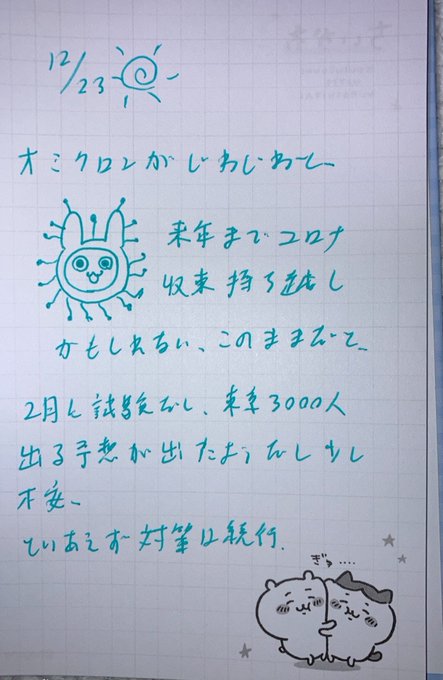 12/23
オミクロンがじわじわと、
来年までコロナ
収束持ち越し
かもしれない、このままだと、
2月に試験だし、東京3000人
出る予想が出たようだし少し
不安、
とりあえず対策は続行.
ぎゅ……